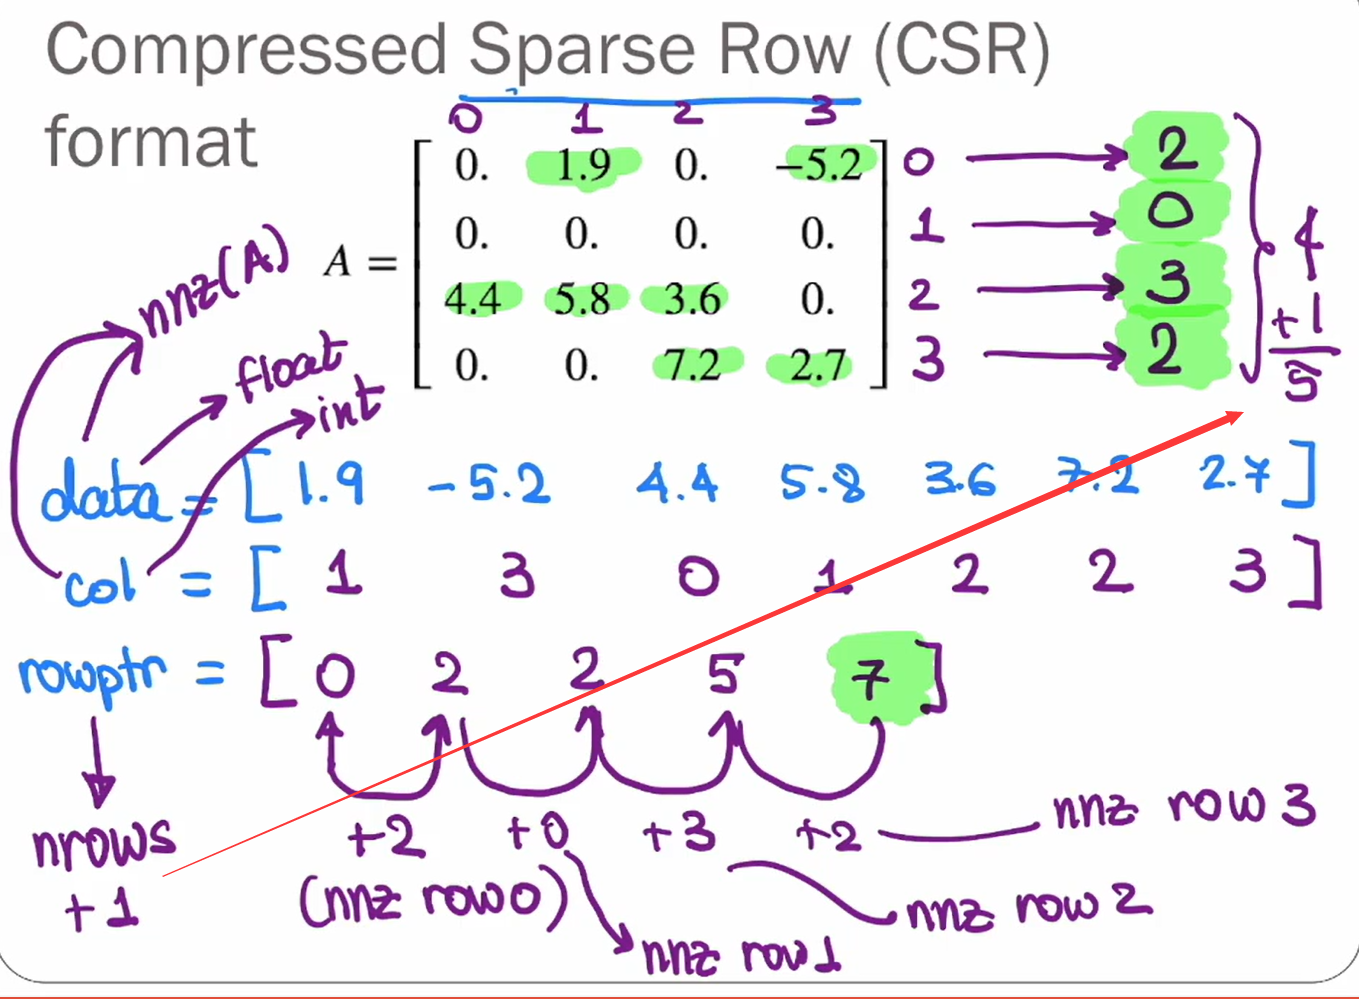 Compressed Sparse Row (CSR)
format
0 1 2 3
A =
0. 1.9 0. −5.2 0 2
0. 0. 0. 0. 1 0
4.4 5.8 3.6 0. 2 3
0. 0. 7.2 2.7 3 2
4
+1
5
nnz(A)
float
int
data = [ 1.9 -5.2 4.4 5.8 3.6 7.2 2.7 ]
col = [ 1 3 0 1 2 2 3 ]
rowptr = [ 0 2 2 5 7 ]
nrows
+1
+2 +0 +3 +2 nnz row 3
(nnz row 0) nnz row 2
nnz row 1